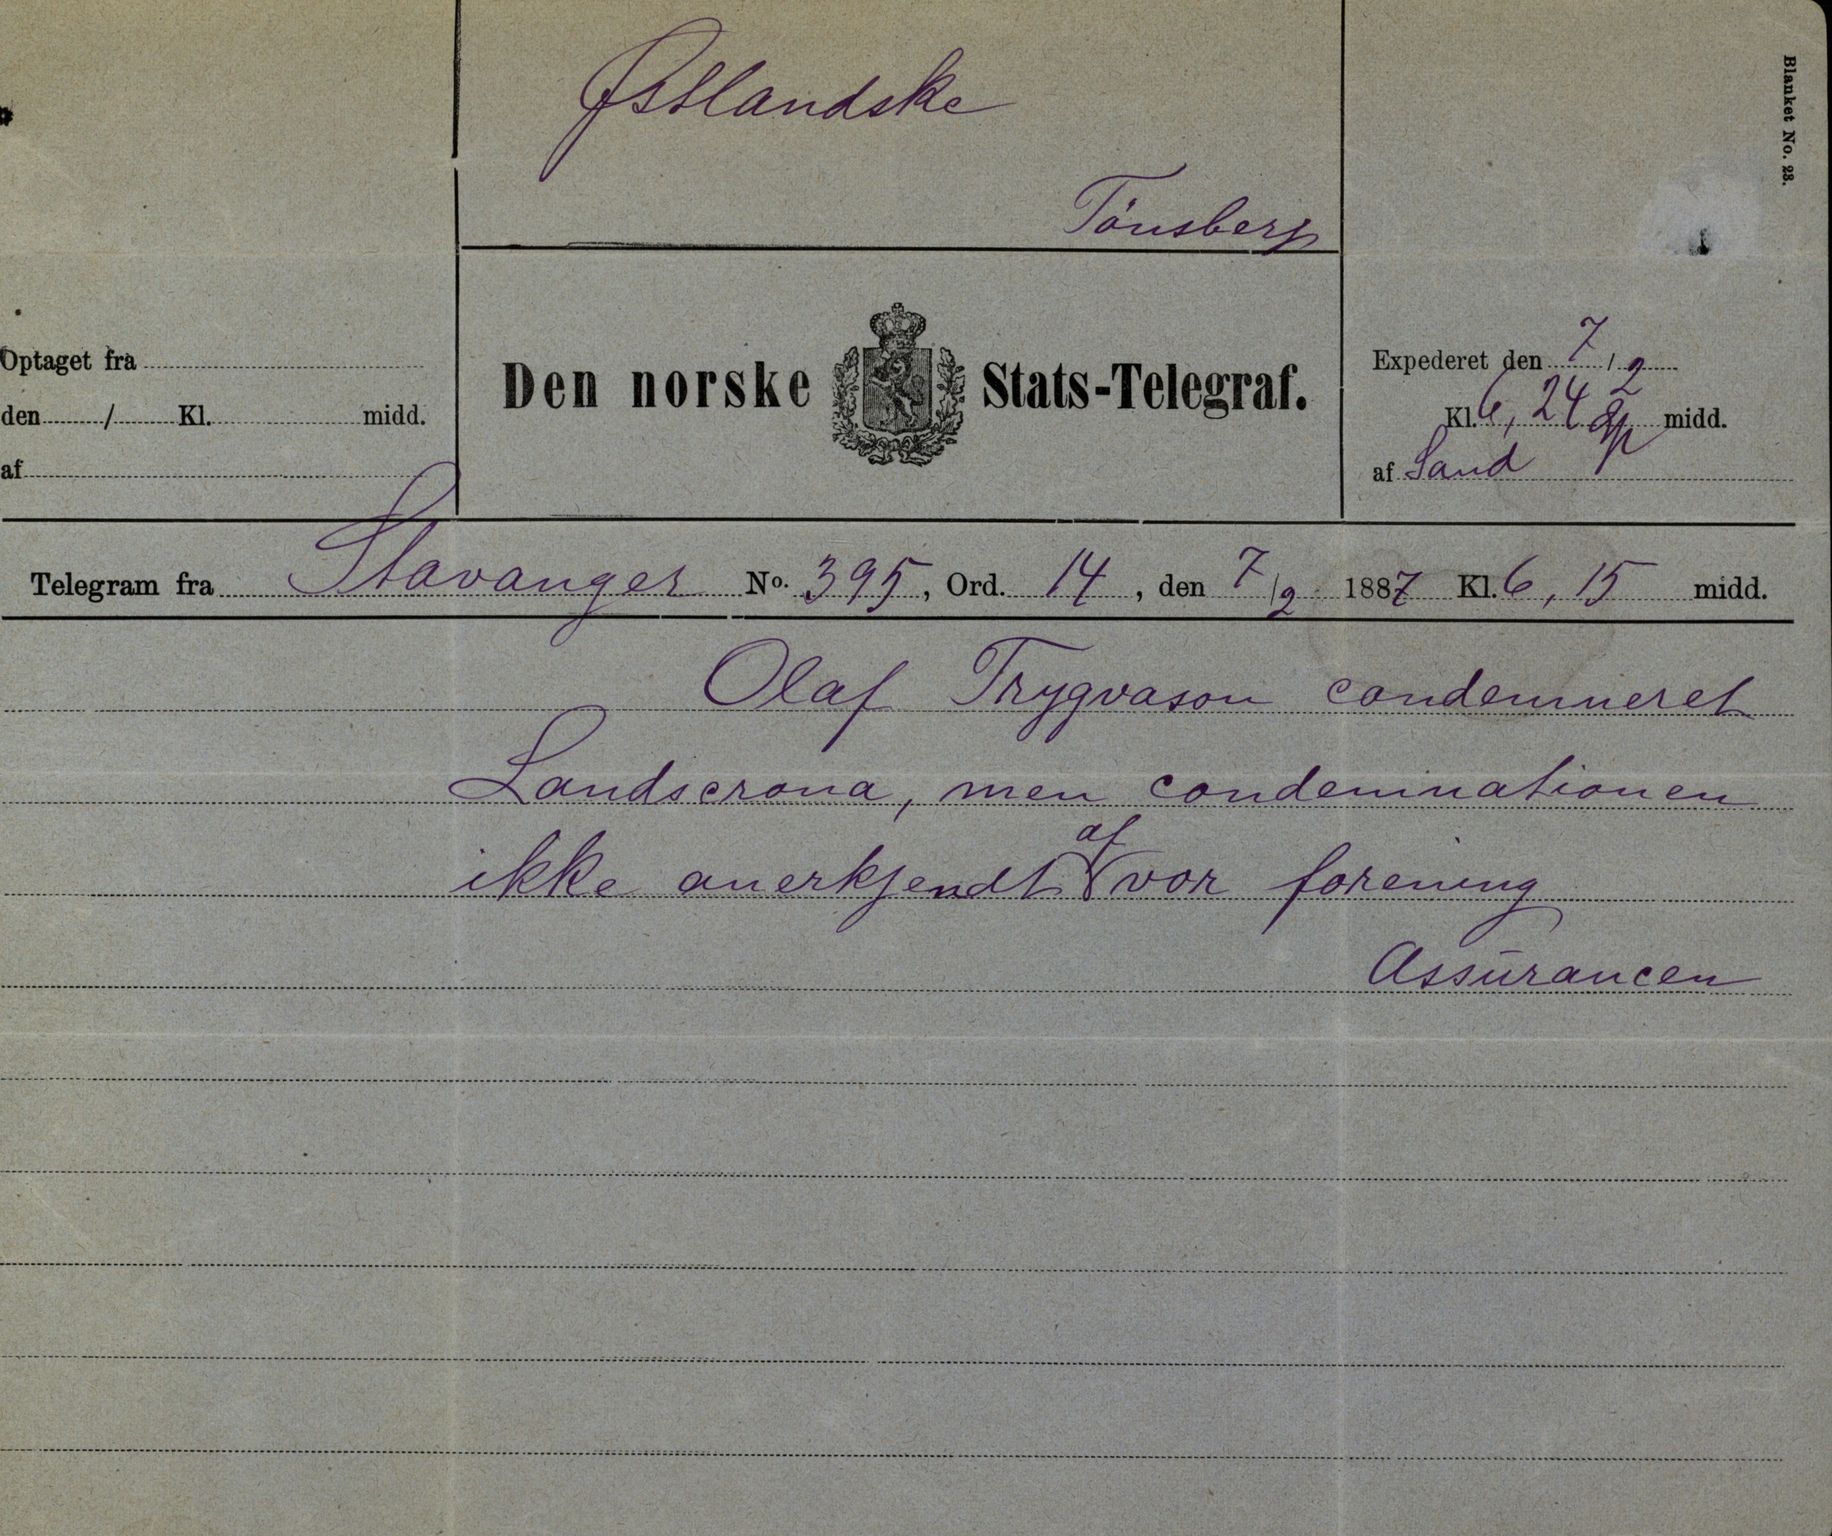 Blanket No. 23.
Østlandske
Tönsberg
Optaget fra
den / Kl. midd.
af
Den norske Stats-Telegraf.
Expederet den 7/2
Kl. 6,24 midd.
af Sand
Telegram fra Stavanger No. 395, Ord. 14, den 7/2 1887 Kl. 6,15 midd.
Olaf Trygvason condemneret
Landscrona, men condemnationen
ikke anerkjendt af vor forening
Assurancen